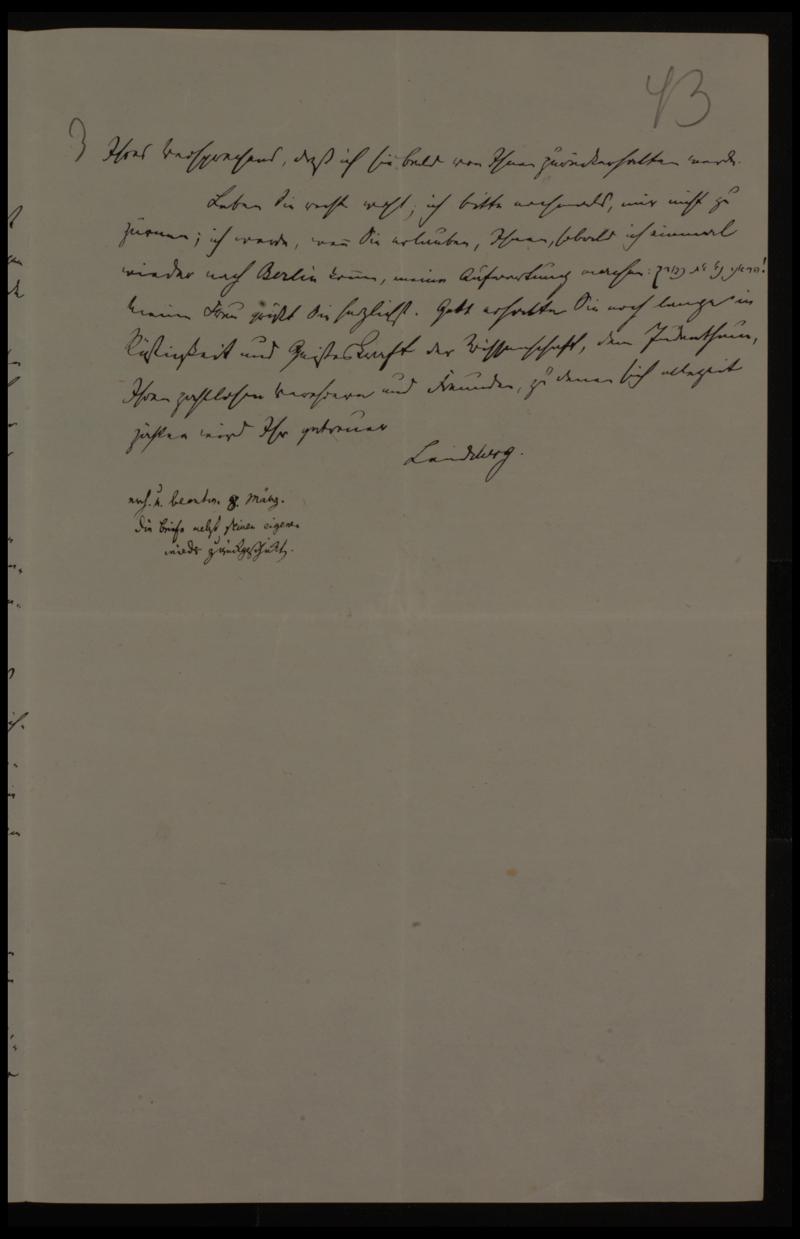 43
3
Ihres Versprechens, daß ich sie bald von Ihnen zurückerhalten werde.
Leben Sie recht wohl; ich bitte nochmals, mir nicht zu
zürnen; ich werde, wenn Sie erlauben, Ihnen, sobald ich einmal
wieder nach Berlin komme, meine Aufwartung machen:
Meine Frau grüßt Sie herzlichst. Gott erhalte Sie noch lange in
Rüstigkeit und Geisteskraft der Wissenschaft, dem Judenthum,
Ihren zahllosen Verehrern und Freunden, zu denen sich allezeit
zählen wird Ihr getreuer
Landsberg.
u. beantw. 8. März.
Die Briefe nebst seinen eigenen
wieder zurückgeschickt.